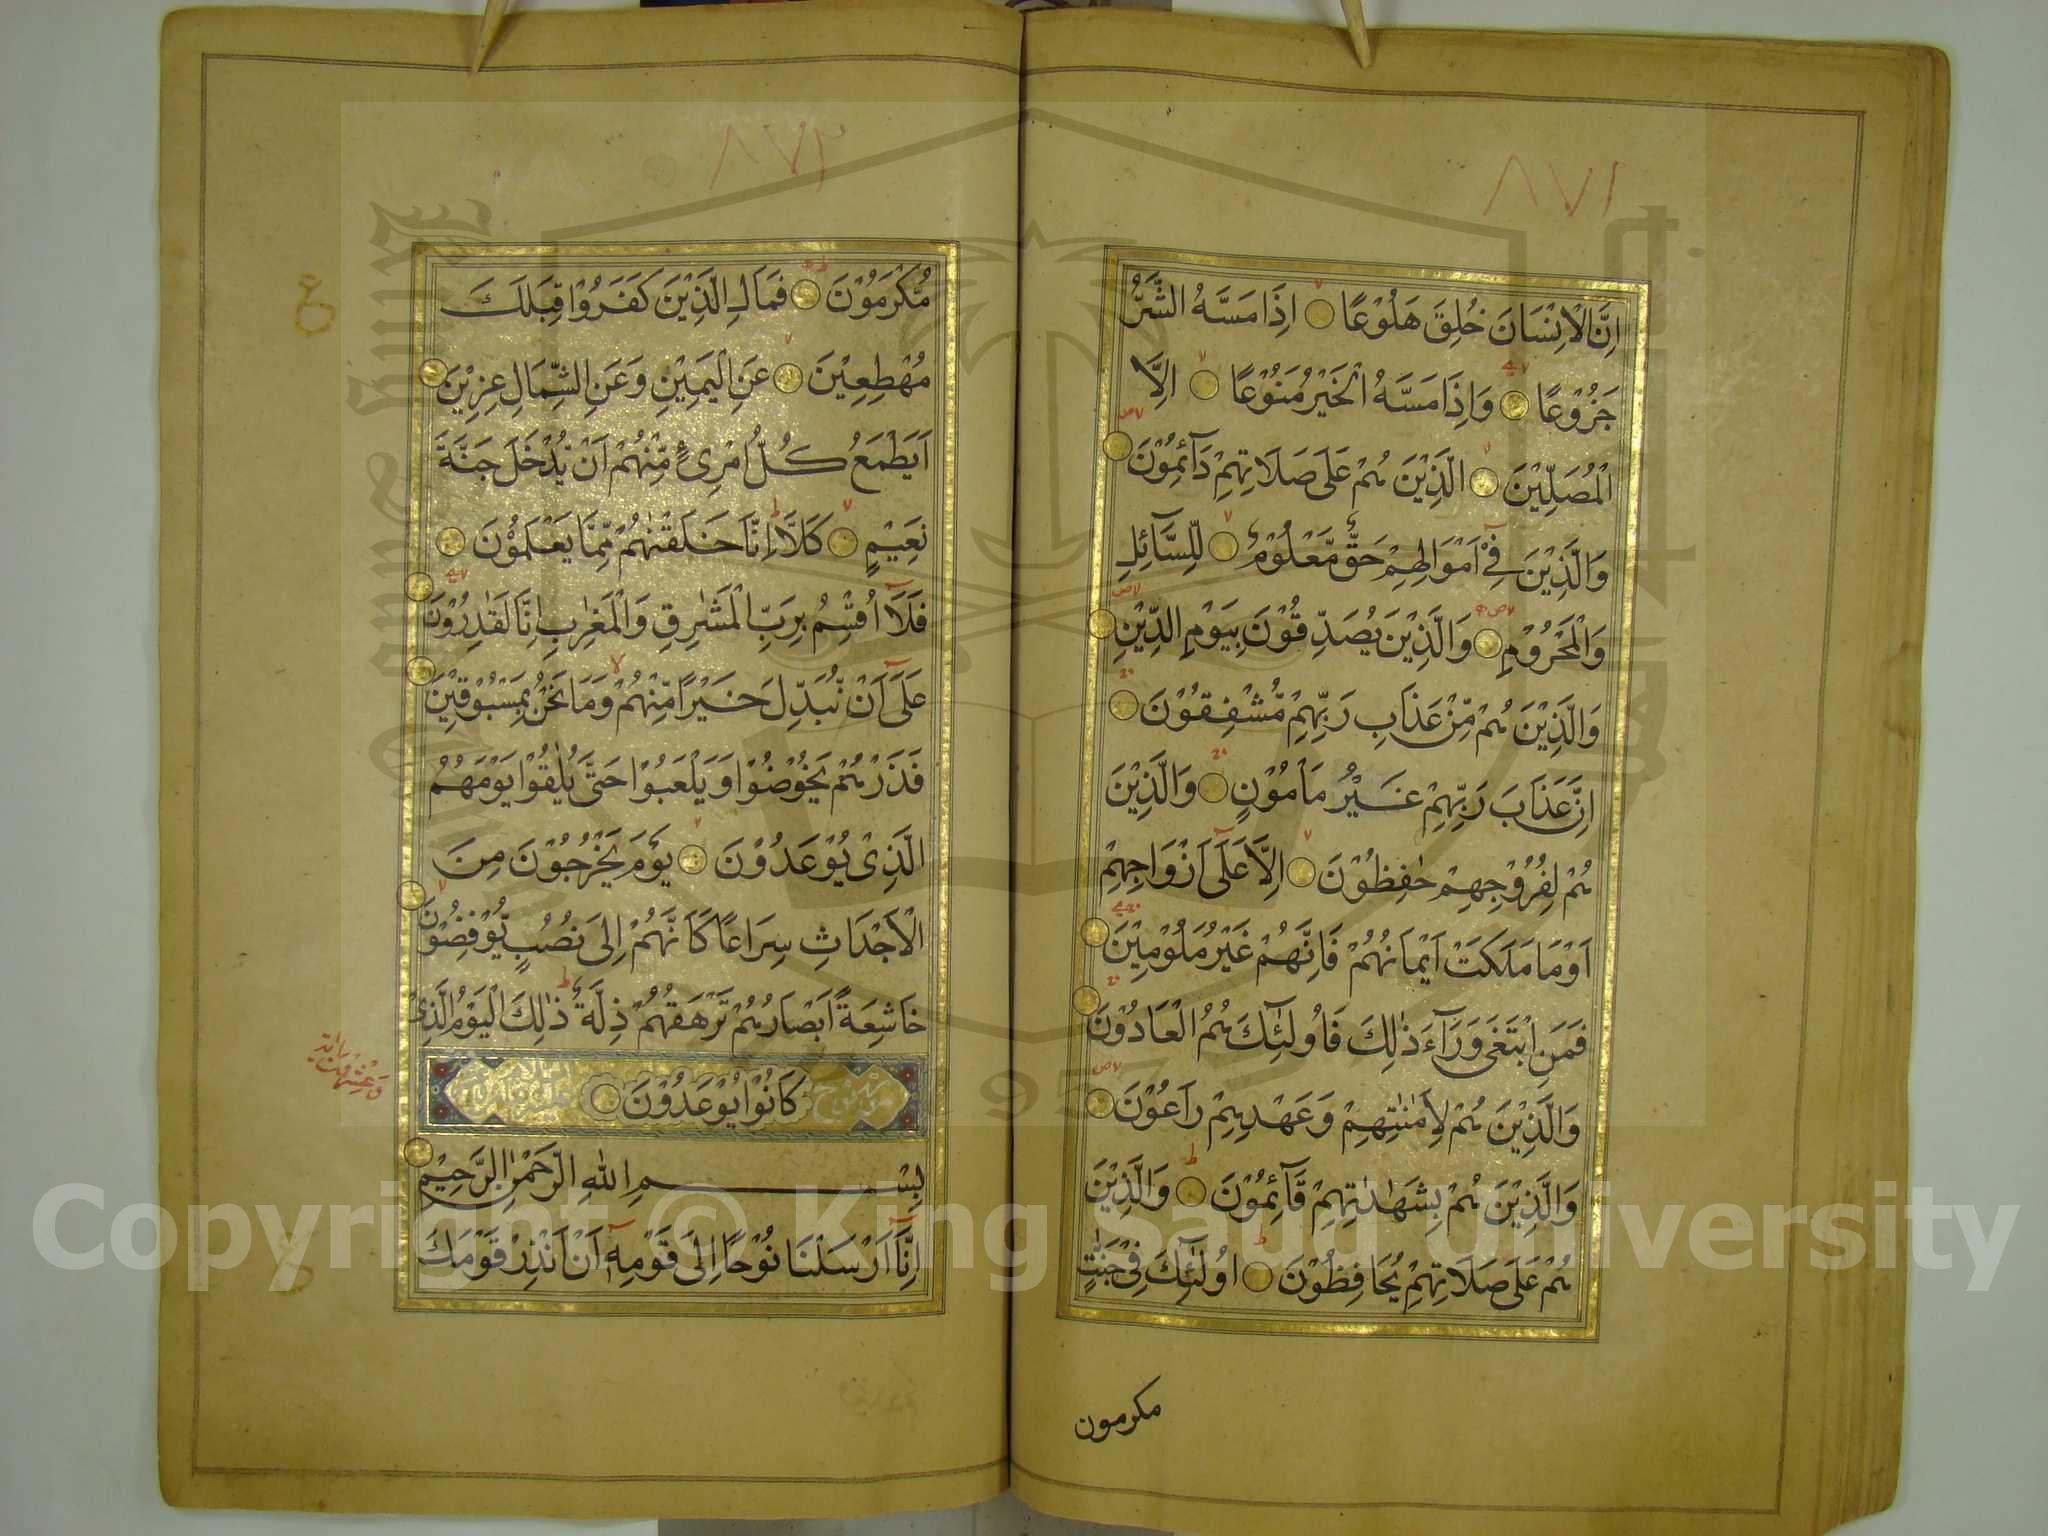 ٨٧١
اِنَّ الْاِنْسَانَ خُلِقَ هَلُوْعًا اِذَا مَسَّهُ الشَّرُّ
جَزُوْعًا وَاِذَا مَسَّهُ الْخَيْرُ مَنُوْعًا اِلَّا
الْمُصَلِّيْنَ الَّذِيْنَ هُمْ عَلَى صَلَاتِهِمْ دَآئِمُوْنَ
وَالَّذِيْنَ فِيْٓ اَمْوَالِهِمْ حَقٌّ مَّعْلُوْمٌ لِّلسَّآئِلِ
وَالْمَحْرُوْمِ وَالَّذِيْنَ يُصَدِّقُوْنَ بِيَوْمِ الدِّيْنِ
وَالَّذِيْنَ هُمْ مِّنْ عَذَابِ رَبِّهِمْ مُّشْفِقُوْنَ
اِنَّ عَذَابَ رَبِّهِمْ غَيْرُ مَاْمُوْنٍ وَالَّذِيْنَ
هُمْ لِفُرُوْجِهِمْ حٰفِظُوْنَ اِلَّا عَلَىٓ اَزْوَاجِهِمْ
اَوْ مَا مَلَكَتْ اَيْمَانُهُمْ فَاِنَّهُمْ غَيْرُ مَلُوْمِيْنَ
فَمَنِ ابْتَغَى وَرَآءَ ذٰلِكَ فَاُولٰٓئِكَ هُمُ الْعَادُوْنَ
وَالَّذِيْنَ هُمْ لِاَمٰنٰتِهِمْ وَعَهْدِهِمْ رَاعُوْنَ
وَالَّذِيْنَ هُمْ بِشَهٰدٰتِهِمْ قَآئِمُوْنَ وَالَّذِيْنَ
هُمْ عَلَى صَلَاتِهِمْ يُحَافِظُوْنَ اُولٰٓئِكَ فِيْ جَنّٰتٍ
مكرمون
٨٧٢
مُّكْرَمُوْنَ فَمَالِ الَّذِيْنَ كَفَرُوْا قِبَلَكَ
مُهْطِعِيْنَ عَنِ الْيَمِيْنِ وَعَنِ الشِّمَالِ عِزِيْنَ
اَيَطْمَعُ كُلُّ امْرِئٍ مِّنْهُمْ اَنْ يُّدْخَلَ جَنَّةَ
نَعِيْمٍ كَلَّا اِنَّا خَلَقْنٰهُمْ مِّمَّا يَعْلَمُوْنَ
فَلَآ اُقْسِمُ بِرَبِّ الْمَشٰرِقِ وَالْمَغٰرِبِ اِنَّا لَقٰدِرُوْنَ
عَلَىٓ اَنْ نُّبَدِّلَ خَيْرًا مِّنْهُمْ وَمَا نَحْنُ بِمَسْبُوْقِيْنَ
فَذَرْهُمْ يَخُوْضُوْا وَيَلْعَبُوْا حَتَّى يُلٰقُوْا يَوْمَهُمُ
الَّذِيْ يُوْعَدُوْنَ يَوْمَ يَخْرُجُوْنَ مِنَ
الْاَجْدَاثِ سِرَاعًا كَاَنَّهُمْ اِلَى نُصُبٍ يُّوْفِضُوْنَ
خَاشِعَةً اَبْصَارُهُمْ تَرْهَقُهُمْ ذِلَّةٌ ذٰلِكَ الْيَوْمُ الَّذِيْ
كَانُوْا يُوْعَدُوْنَ
بِسْمِ اللهِ الرَّحْمٰنِ الرَّحِيْمِ
اِنَّآ اَرْسَلْنَا نُوْحًا اِلَى قَوْمِهٖٓ اَنْ اَنْذِرْ قَوْمَكَ
ع
Copyright © King Saud University
1957